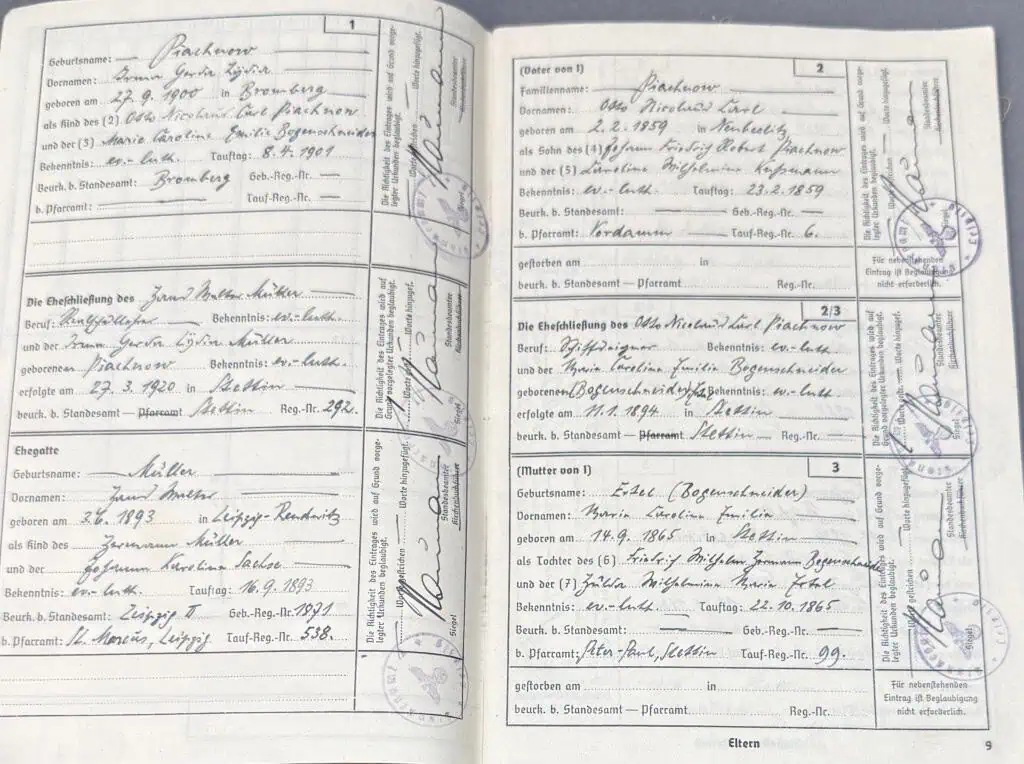 1
Geburtsname: Piachnow
Vornamen: Irma Gerda Lydia
geboren am 27.9.1900 in Bromberg
als Kind des (2) Otto Nicolaus Carl Piachnow
und der (3) Marie Caroline Emilie Bogenschneider
Bekenntnis: ev.-luth. Tauftag: 8.4.1901
Beurk. b. Standesamt: Bromberg Geb.-Reg.-Nr. —
b. Pfarramt: — Tauf-Reg.-Nr. —
Die Richtigkeit des Eintrages wird auf Grund vorge-
legter Urkunden beglaubigt.
Worte gestrichen Worte hinzugefügt.
Standesbeamter
Kirchenbuchführer
Siegel
Die Eheschließung des Hans Walter Müller
Beruf: Bekenntnis: ev.-luth.
und der Irma Gerda Lydia Müller
geborenen Piachnow Bekenntnis: ev.-luth.
erfolgte am 27.3.1920 in Stettin
beurk. b. Standesamt – Pfarramt Stettin Reg.-Nr. 292.
Die Richtigkeit des Eintrages wird auf
Grund vorgelegter Urkunden beglaubigt.
Worte hinzugef.
Standesbeamter
Kirchenbuchführer
Siegel
Ehegatte
Geburtsname: — Müller
Vornamen: Hans Walter
geboren am 3.6.1893 in Leipzig-Reudnitz
als Kind des Hermann Müller
und der Johanna Karoline Sachse
Bekenntnis: ev.-luth. Tauftag: 16.9.1893
Beurk. b. Standesamt: Leipzig II Geb.-Reg.-Nr. 1971
b. Pfarramt: St. Marcus, Leipzig Tauf-Reg.-Nr. 538.
Die Richtigkeit des Eintrages wird auf Grund vorge-
legter Urkunden beglaubigt.
Worte gestrichen Worte hinzugefügt.
Standesbeamter
Kirchenbuchführer
Siegel
(Vater von 1) 2
Familienname: Piachnow
Vornamen: Otto Nicolaus Carl
geboren am 2.2.1859 in
als Sohn des (4) Johann Friedrich Robert Piachnow
und der (5) Caroline Wilhelmine
Bekenntnis: ev.-luth Tauftag: 23.2.1859
Beurk. b. Standesamt: — Geb.-Reg.-Nr. —
b. Pfarramt: Vordamm Tauf-Reg.-Nr. 6.
gestorben am in
beurk. b. Standesamt — Pfarramt Reg.-Nr.
Die Richtigkeit des Eintrages wird auf Grund vorge-
legter Urkunden beglaubigt.
Worte hinzugefügt.
Standesbeamter
Kirchenbuchführer
Siegel
Für nebenstehenden
Eintrag ist Beglaubigung
nicht erforderlich.
2/3
Die Eheschließung des Otto Nicolaus Carl Piachnow
Beruf: Schiffseigner Bekenntnis: ev.-luth
und der Maria Caroline Emilie Bogenschneider
geborenen (Bogenschneider) Bekenntnis: ev.-luth
erfolgte am 11.1.1894 in Stettin
beurk. b. Standesamt — Pfarramt Stettin Reg.-Nr. —
Die Richtigkeit des Eintrages wird auf
Grund vorgelegter Urkunden beglaubigt.
Worte hinzugef.
Standesbeamter
Kirchenbuchführer
Siegel
(Mutter von 1) 3
Geburtsname: Ertel (Bogenschneider)
Vornamen: Maria Caroline Emilie
geboren am 14.9.1865 in Stettin
als Tochter des (6) Friedrich Wilhelm Hermann Bogenschneider
und der (7) Wilhelmine Maria Ertel
Bekenntnis: ev.-luth Tauftag: 22.10.1865
Beurk. b. Standesamt: — Geb.-Reg.-Nr. —
b. Pfarramt: Peter-Paul, Stettin Tauf-Reg.-Nr. 99.
gestorben am in
beurk. b. Standesamt — Pfarramt Reg.-Nr.
Die Richtigkeit des Eintrages wird auf Grund vorge-
legter Urkunden beglaubigt.
Worte gestrichen Worte hinzugefügt.
Standesbeamter
Kirchenbuchführer
Siegel
Für nebenstehenden
Eintrag ist Beglaubigung
nicht erforderlich.
Eltern
9